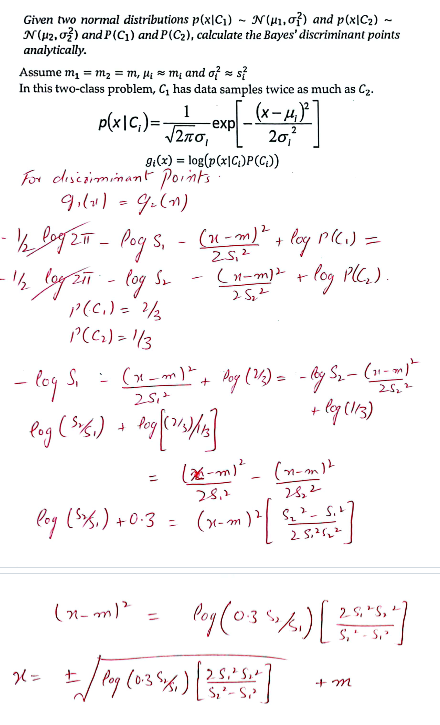 Given two normal distributions p(x|C₁) ~ 𝒩(μ₁,σ₁²) and p(x|C₂) ~
𝒩(μ₂,σ₂²) and P(C₁) and P(C₂), calculate the Bayes' discriminant points
analytically.
Assume m₁ = m₂ = m, μᵢ ≈ mᵢ and σᵢ² ≈ sᵢ²
In this two-class problem, C₁ has data samples twice as much as C₂.
p(x|Cᵢ) = 1/(√2π σᵢ) exp[-(x-μᵢ)²/2σᵢ²]
gᵢ(x) = log(p(x|Cᵢ)P(Cᵢ))
For discriminant Points.
g₁(x) = g₂(x)
- 1/2 log 2π - log S₁ - (x-m)²/2S₁² + log P(C₁) =
- 1/2 log 2π - log S₂ - (x-m)²/2S₂² + log P(C₂).
P(C₁) = 2/3
P(C₂) = 1/3
- log S₁ - (x-m)²/2S₁² + log (2/3) = - log S₂ - (x-m)²/2S₂²
+ log (1/3)
log (S₂/S₁) + log[(2/3)/1/3]
= (x-m)²/2S₁² - (x-m)²/2S₂²
log (S₂/S₁) + 0.3 = (x-m)² [S₂² - S₁²/2S₁²S₂²]
(x-m)² = log(0.3 S₂/S₁) [2S₁²S₂²/S₂²-S₁²]
x = ± √log (0.3 S₂/S₁) [2S₁²S₂²/S₂²-S₁²] + m